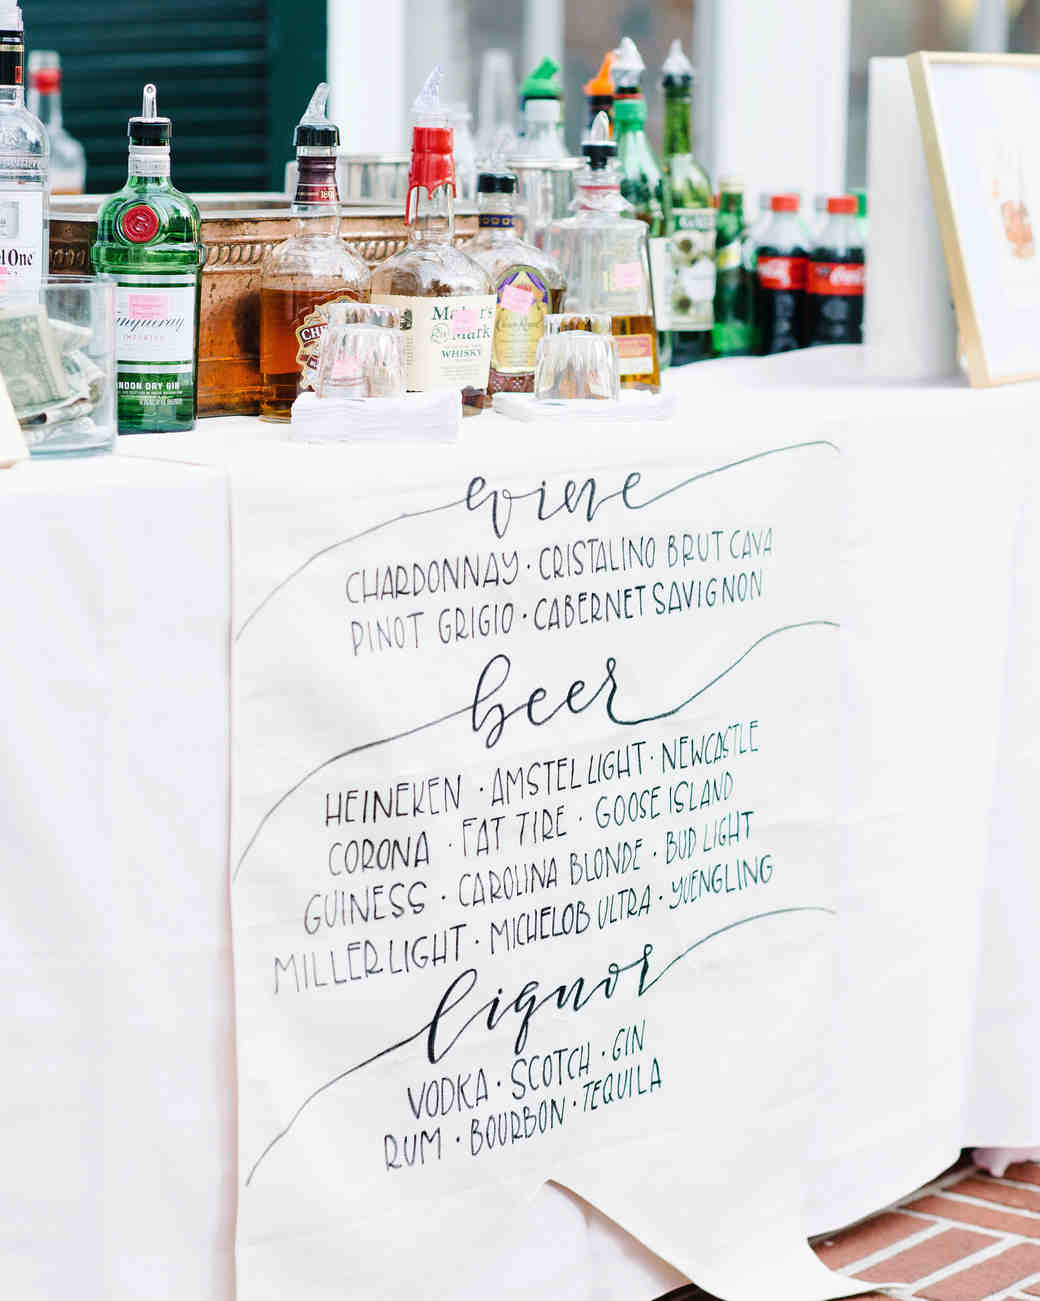 el One
Tanqueray
IMPORTED
LONDON DRY GIN
Maker's
Mark
WHISKY
Coca-Cola
wine
CHARDONNAY · CRISTALINO BRUT CAVA
PINOT GRIGIO · CABERNET SAVIGNON
beer
HEINEKEN · AMSTEL LIGHT · NEWCASTLE
CORONA · FAT TIRE · GOOSE ISLAND
GUINESS · CAROLINA BLONDE · BUD LIGHT
MILLER LIGHT · MICHELOB ULTRA · YUENGLING
liquor
VODKA · SCOTCH · GIN
RUM · BOURBON · TEQUILA